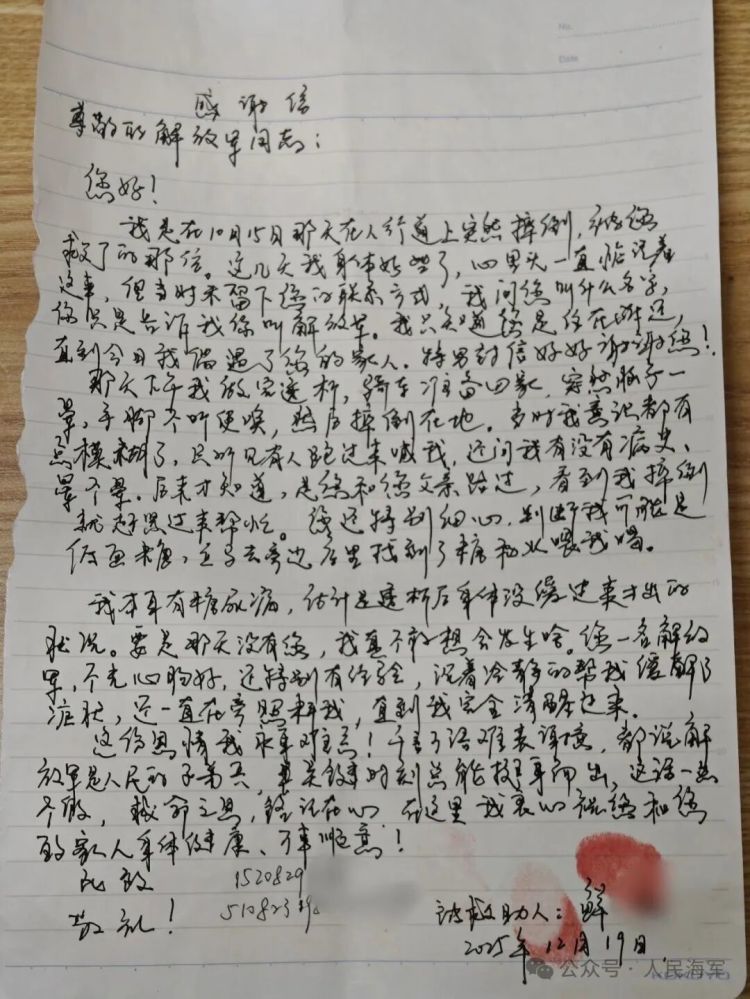 No.
Date
感谢信
尊敬的解放军同志：
您好！
我是在10月15日那天在人行道上突然摔倒，被您
救了的那位。这几天我身体好些了，心里头一直惦记着
这事，但当时未留下您的联系方式，我问您叫什么名字，
您只是告诉我你叫解放军。我只知道您是住在附近，
直到今日我偶遇了您的家人。特写封信好好谢谢您！
那天下午我做完透析，骑车准备回家，突然脑子一
晕，手脚不听使唤，然后摔倒在地。当时我意识都有
点模糊了，只听见有人跑过来喊我，还问我有没有病史、
晕不晕。后来才知道，是您和您父亲路过，看到我摔倒
就赶紧过来帮忙。您还特别细心，判断我可能是
低血糖，立马去旁边店里找到了糖和水喂我喝。
我本身有糖尿病，估计是透析后身体没缓过来才出的
状况。要是那天没有您，我真不敢想会发生啥。您一名解放
军，不光心肠好，还特别有经验，沉着冷静的帮我缓解了
症状，还一直在旁照料我，直到我完全清醒过来。
这份恩情我永事难忘！千言万语难表谢意，都说解
放军是人民的子弟兵，关键时刻总能挺身而出，这话一点
不假，救命之恩，铭记在心，在这里我衷心祝您和您
的家人身体健康、万事顺意！
此致 1520829
敬礼！ 510823
被救助人：鲜
2025年12月19日
公众号·人民海军